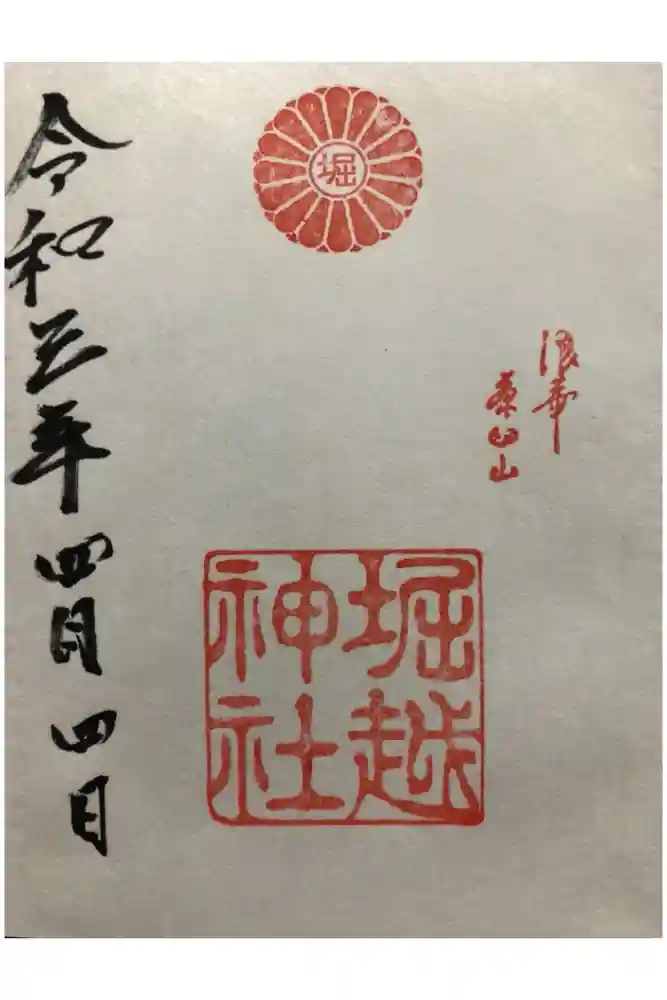 堀
浪華
茶臼山
堀越
神社
令和三年四月四日